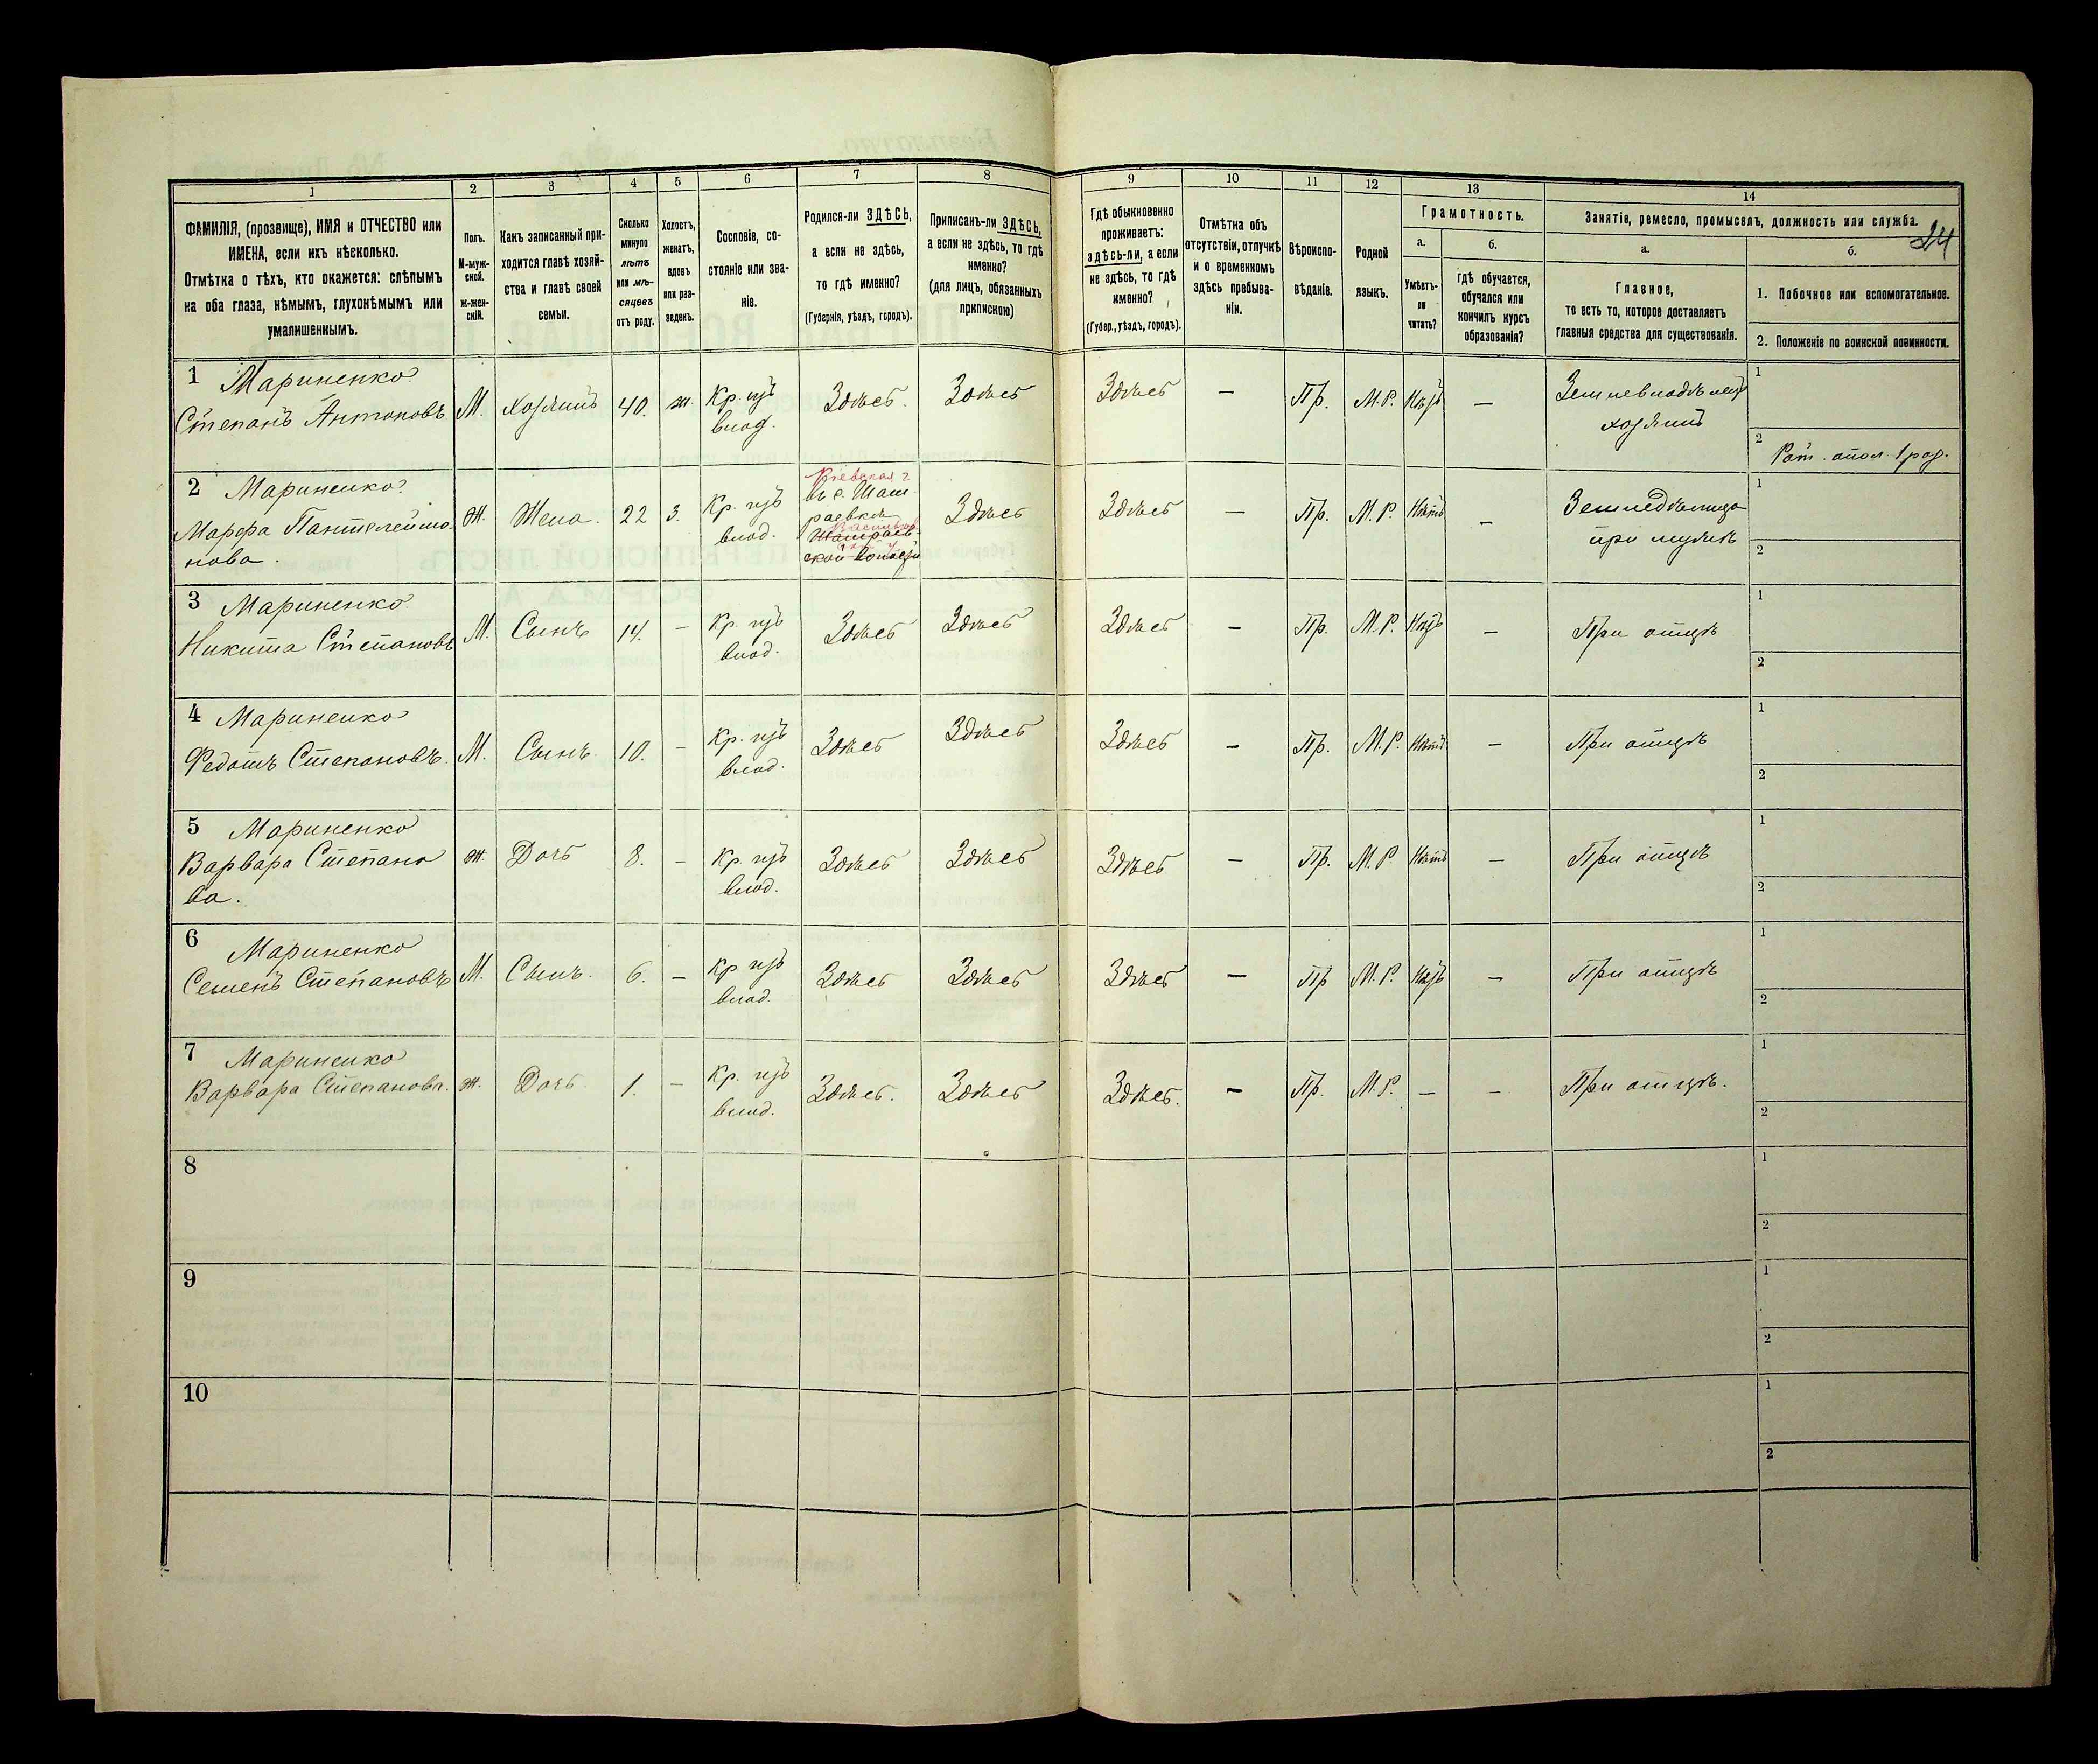 24
1 2 3 4 5 6 7 8 9 10 11 12 13 14
ФАМИЛІЯ, (прозвище), ИМЯ и ОТЧЕСТВО или
ИМЕНА, если ихъ нѣсколько.
Отмѣтка о тѣхъ, кто окажется: слѣпымъ
на оба глаза, нѣмымъ, глухонѣмымъ или
умалишеннымъ.
Полъ.
М-муж-
ской.
ж-жен-
скій.
Какъ записанный при-
ходится главѣ хозяй-
ства и главѣ своей
семьи.
Сколько
минуло
лѣтъ
или мѣ-
сяцевъ
отъ роду.
Холостъ,
женатъ,
вдовъ
или раз-
веденъ.
Сословіе, со-
стояніе или зва-
ніе.
Родился-ли ЗДѢСЬ,
а если не здѣсь,
то гдѣ именно?
(Губернія, уѣздъ, городъ).
Приписанъ-ли ЗДѢСЬ,
а если не здѣсь, то гдѣ
именно?
(для лицъ, обязанныхъ
припискою)
Гдѣ обыкновенно
проживаетъ:
здѣсь-ли, а если
не здѣсь, то гдѣ
именно?
(Губер., уѣздъ, городъ).
Отмѣтка объ
отсутствіи, отлучкѣ
и о временномъ
здѣсь пребыва-
ніи.
Вѣроиспо-
вѣданіе.
Родной
языкъ.
Грамотность.
а.
Умѣетъ-
ли
читать?
б.
гдѣ обучается,
обучался или
кончилъ курсъ
образованія?
Занятіе, ремесло, промыселъ, должность или служба.
а.
Главное,
то есть то, которое доставляетъ
главныя средства для существованія.
б.
1. Побочное или вспомогательное.
2. Положеніе по воинской повинности.
1 Мариненко
Степанъ Антоновъ
М. хозяинъ 40. ж. Кр. изъ
влад.
Здѣсь. Здѣсь Здѣсь — Пр. М.Р. Нѣтъ —
хозяинъ
1
2 Рат. опол. 1 раз.
2 Мариненко
Марфа Пантелеймо-
нова.
Ж. Жена. 22 З. Кр. изъ
влад.
Кіевская г
въ с. Шам
раевкѣ
Шамраев-
ской волости
Здѣсь Здѣсь — Пр. М.Р. Нѣтъ —
при мужѣ
1
2
3 Мариненко
Никита Степановъ
М. Сынъ 14. — Кр. изъ
влад.
Здѣсь Здѣсь Здѣсь — Пр. М.Р. Нѣтъ — При отцѣ
1
2
4 Мариненко
Федотъ Степановъ.
М. Сынъ 10. — Кр. изъ
влад.
Здѣсь Здѣсь Здѣсь — Пр. М.Р. Нѣтъ — При отцѣ
1
2
5 Мариненко
Варвара Степано
ва.
Ж. Дочь 8. — Кр. изъ
влад.
Здѣсь Здѣсь Здѣсь — Пр. М.Р. Нѣтъ — При отцѣ
1
2
6 Мариненко
Семенъ Степановъ
М. Сынъ. 6. — Кр изъ
влад.
Здѣсь Здѣсь Здѣсь — Пр М.Р. Нѣтъ — При отцѣ
1
2
7 Мариненко
Варвара Степанова.
Ж. Дочь 1. — Кр. изъ
влад.
Здѣсь. Здѣсь Здѣсь. — Пр. М.Р. — — При отцѣ.
1
2
8
1
2
9
1
2
10
1
2